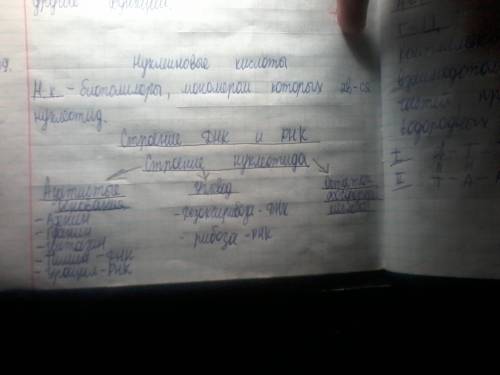 другие функции.
19.
Нуклииновые кислоты
Н.к. - биополимеры, мономером которых яв-ся
нуклеотид.
Строение ДНК и РНК
Строение нуклеотида
Азотистые
основания
- Аденин
- Гуанин
- Цитозин
- Тимин - ДНК
- Урацил - РНК
Углевод
- Дезоксирибоза - ДНК
- рибоза - РНК
Остаток
фосфорной
кислоты
взаимодей
водородных
I
II